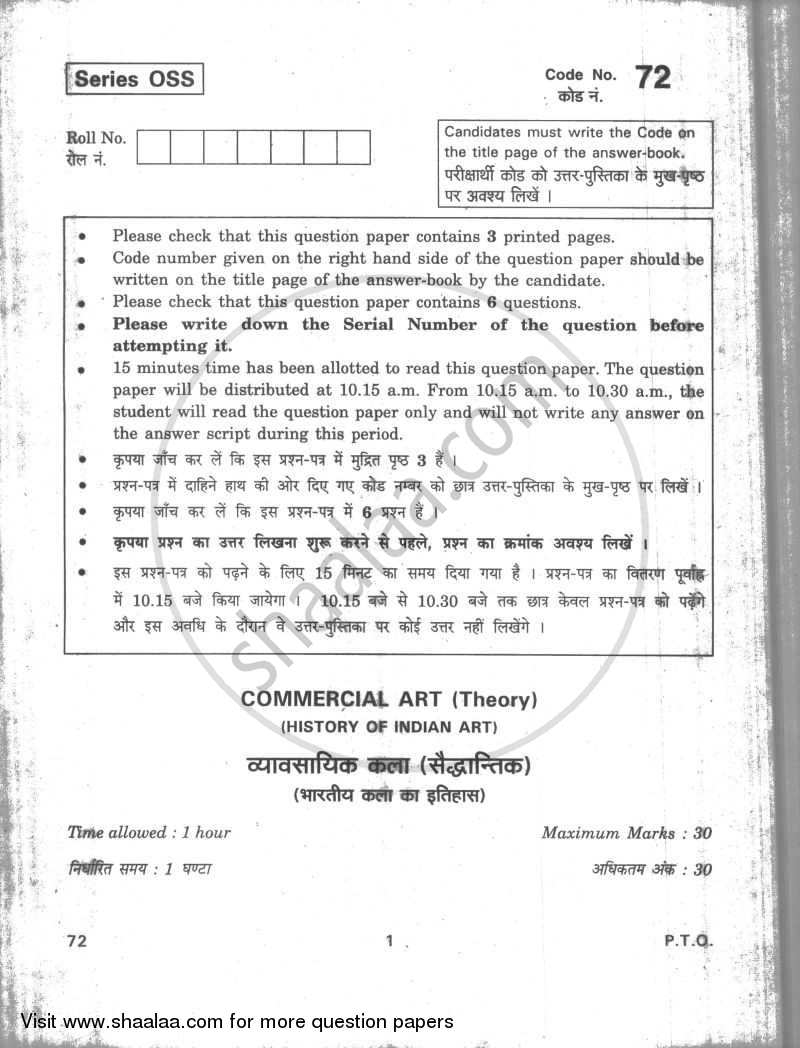 Series OSS
Code No. 72
कोड नं.
Roll No.
रोल नं.
Candidates must write the Code on
the title page of the answer-book.
परीक्षार्थी कोड को उत्तर-पुस्तिका के मुख-पृष्ठ
पर अवश्य लिखें ।
• Please check that this question paper contains 3 printed pages.
• Code number given on the right hand side of the question paper should be
written on the title page of the answer-book by the candidate.
• Please check that this question paper contains 6 questions.
• Please write down the Serial Number of the question before
attempting it.
• 15 minutes time has been allotted to read this question paper. The question
paper will be distributed at 10.15 a.m. From 10.15 a.m. to 10.30 a.m., the
student will read the question paper only and will not write any answer on
the answer script during this period.
• कृपया जाँच कर लें कि इस प्रश्न-पत्र में मुद्रित पृष्ठ 3 हैं ।
• प्रश्न-पत्र में दाहिने हाथ की ओर दिए गए कोड नम्बर को छात्र उत्तर-पुस्तिका के मुख-पृष्ठ पर लिखें ।
• कृपया जाँच कर लें कि इस प्रश्न-पत्र में 6 प्रश्न हैं ।
• कृपया प्रश्न का उत्तर लिखना शुरू करने से पहले, प्रश्न का क्रमांक अवश्य लिखें ।
• इस प्रश्न-पत्र को पढ़ने के लिए 15 मिनट का समय दिया गया है । प्रश्न-पत्र का वितरण पूर्वाह्न
में 10.15 बजे किया जायेगा । 10.15 बजे से 10.30 बजे तक छात्र केवल प्रश्न-पत्र को पढ़ेंगे
और इस अवधि के दौरान वे उत्तर-पुस्तिका पर कोई उत्तर नहीं लिखेंगे ।
shaalaa.com
COMMERCIAL ART (Theory)
(HISTORY OF INDIAN ART)
व्यावसायिक कला (सैद्धान्तिक)
(भारतीय कला का इतिहास)
Time allowed : 1 hour
Maximum Marks : 30
निर्धारित समय : 1 घण्टा
अधिकतम अंक : 30
72
1
P.T.O.
Visit www.shaalaa.com for more question papers